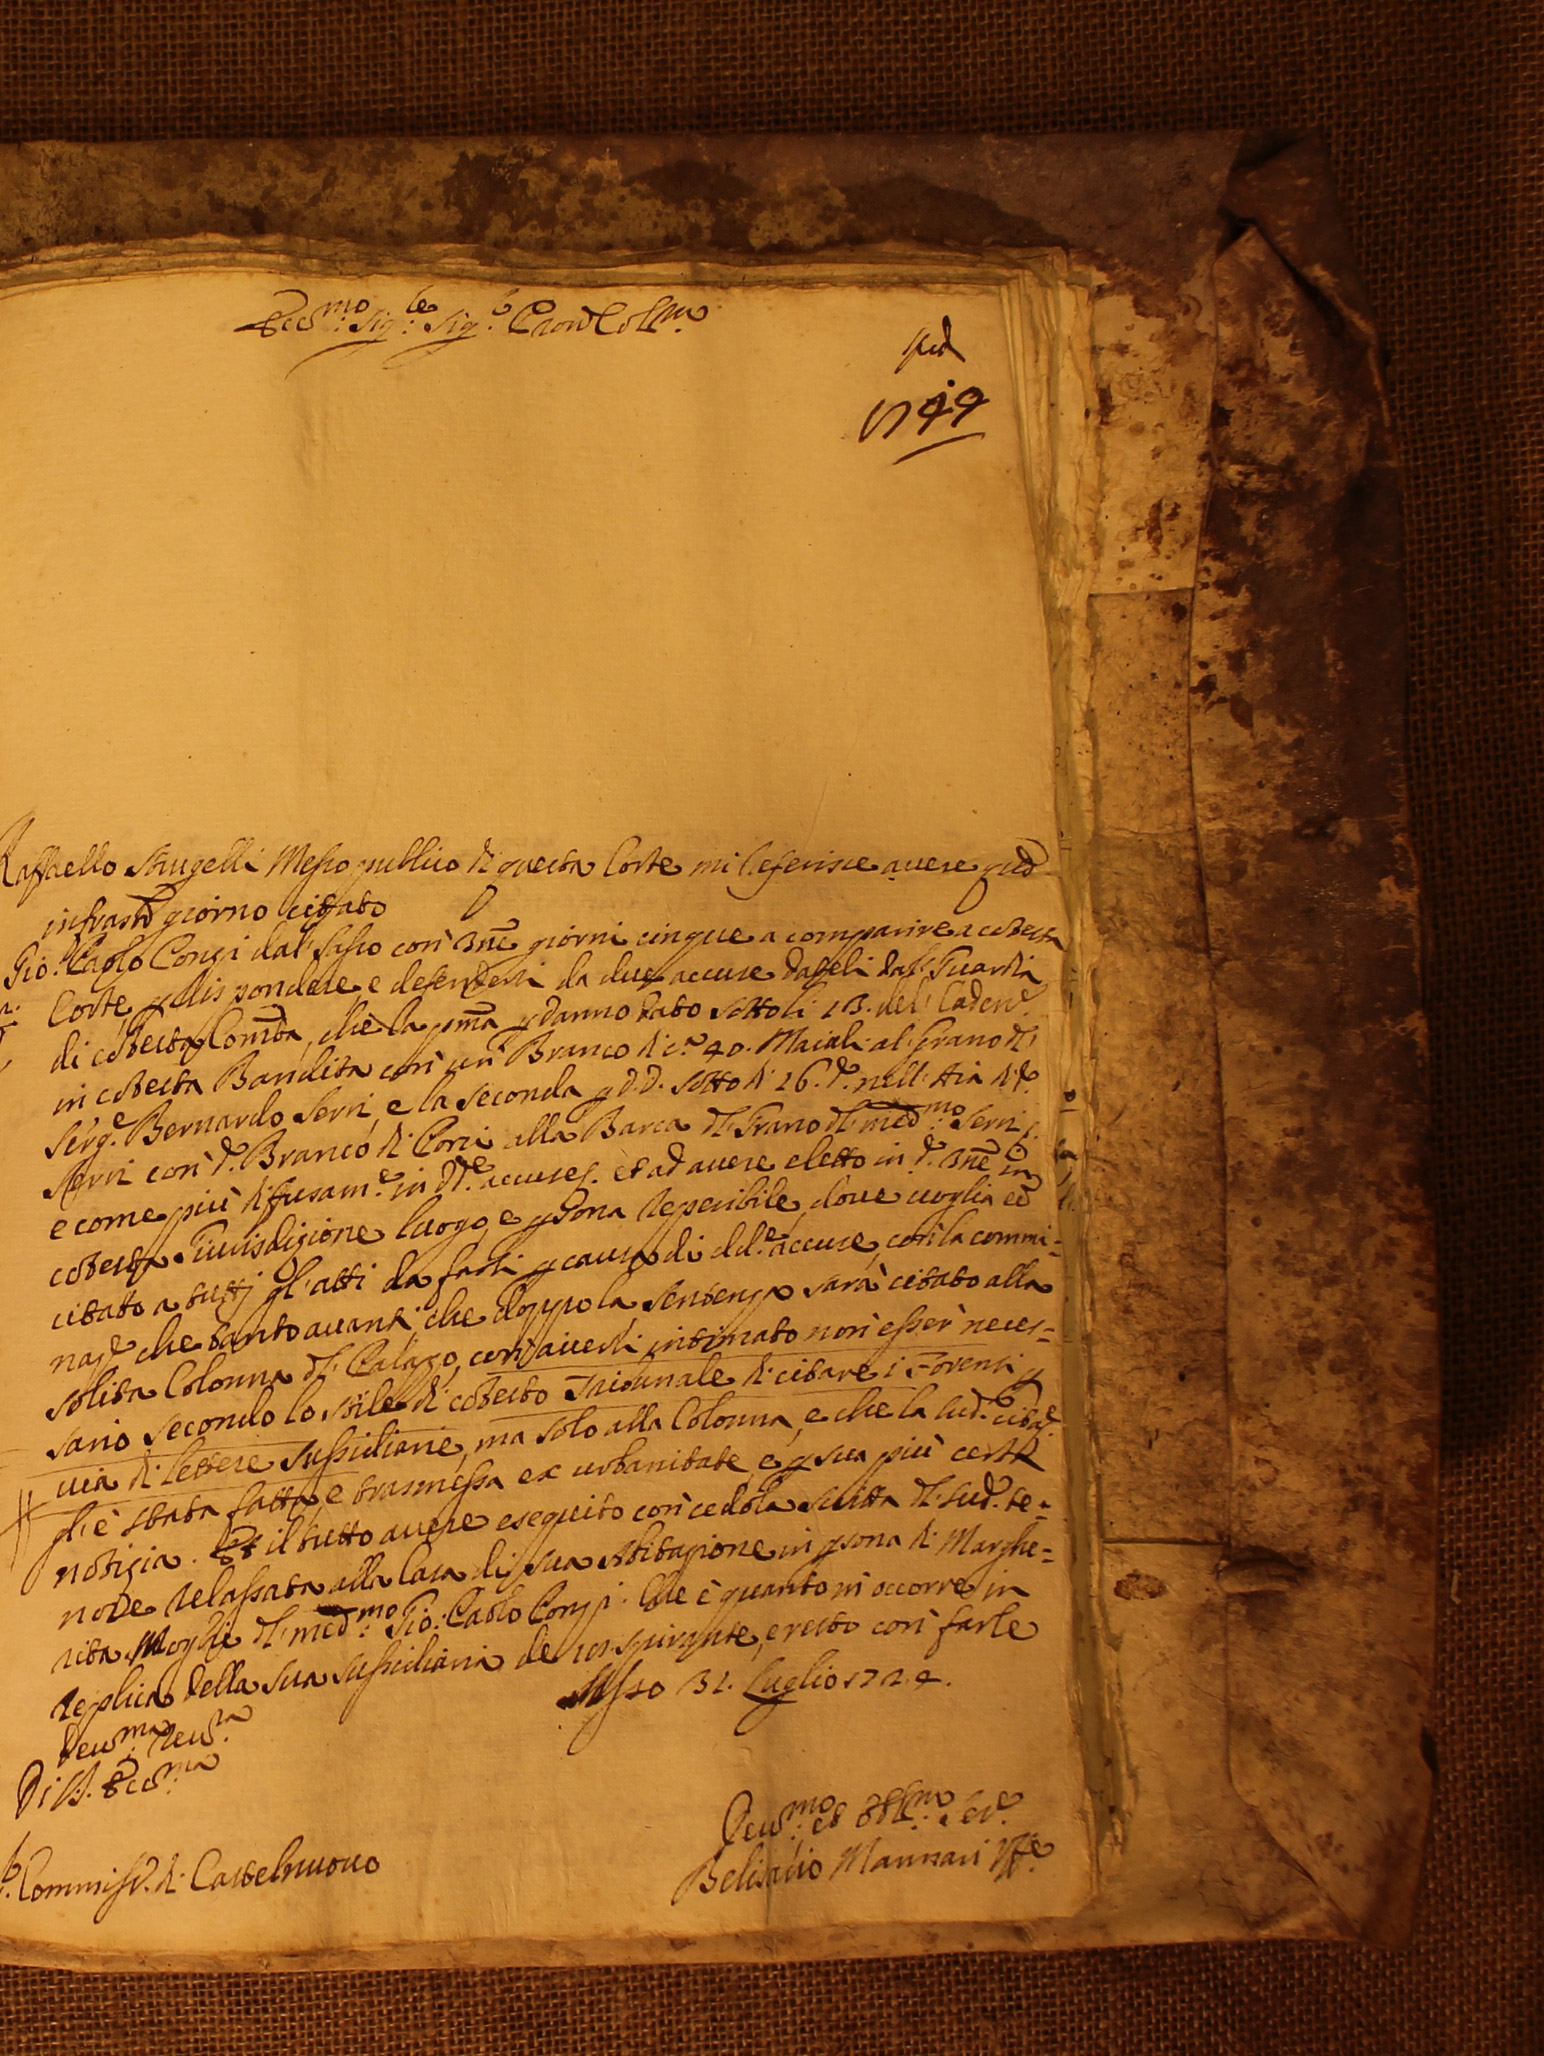 Ecc.mo Sig.re Sig.r Pron Col.mo
1744
Raffaello Stiugelli Messo publico di questa Corte mi referisce avere
infrasto giorno citato
Gio: Paolo Congi dal Sasso con tne giorni cinque a comparire a cotesta
Corte p rispondere e defendersi da due accuse dateli dal Guardia
di cotesta Comtà, che la pma p danno dato sotto li 13. del Caden.e
in cotesta Bandita con un Branco di c.a 40. Maiali al Grano di
Serg.e Bernardo Serri, e la seconda p d.d. sotto di 16. d.o nell Aia di d.o
Serri con d.o Branco di Porci alla Barca del Grano del med.mo Serri
e come più difusam.e in d.e accuse et ad avere eletto in d.o tne in
cotesta Giurisdizione luogo, e psona reperibile, dove voglia ee
citatto a tutti gl'atti da farsi p causa di dd.e accuse, con la commi=
naz.e che tanto avanti che doppo la sentenza sarà citato alla
solita Colonna del Palazo, con averli intimato non esser neces=
sario secondo lo stile di cotesto Tribunale di citare i Forensi p
via di lettere sussidiarie, ma solo alla Colonna, e che la sud.a citaz.e
gl'è stata fatta, e trasmessa ex urbanitate, e p sua più certa
notizia. Et il tutto avere eseguito con cedola scritta del sud.o te=
nore relassata alla Casa di sua Abitazione in psona di Marghe=
rita Moglie del med.mo Gio: Paolo Congi. Che è quanto m'occorre in
replica della sua sussidiaria de 10. spirante, e resto con farle
dev.ma rev.za
Di V.S. Ecc.ma
Sasso 31. Luglio 1724.
Commiss.o di Castelnuovo
Dev.mo et Obb.mo Ser.e
Belisario Mannari